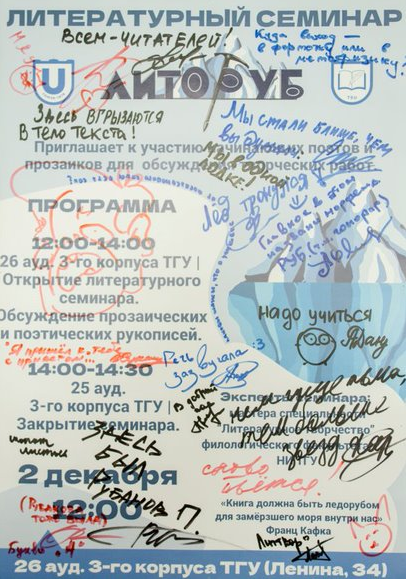 ЛИТЕРАТУРНЫЙ СЕМИНАР
Всем-читателей!
Куда выход —
в форточку или в
метафизику?
ЛИТОРУБ
Здесь вгрызаются
в тело текста!
Мы стали ближе, чем
Мы в одной
лодке!
Приглашает к участию начинающих поэтов и
прозаиков для обсуждения творческих работ.
Лёд тронулся
ПРОГРАММА
12:00-14:00
26 ауд. 3-го корпуса ТГУ |
Открытие литературного
семинара.
Обсуждение прозаических
и поэтических рукописей.
надо учиться
"Я пришёл к тебе
с приветом...
Речь
зазвучала :3
14:00-14:30
25 ауд.
3-го корпуса ТГУ |
Закрытие семинара.
В добрый
час
Эксперты семинара:
мастера специальности
"Литературное творчество"
филологического факультета
НИ ТГУ
ЗДЕСЬ
БЫЛ
РУБАНОВ П.
слово
бьётся.
2 декабря
12:00
(Рубакова
тоже была)
«Книга должна быть ледорубом
для замёрзшего моря внутри нас»
Франц Кафка
Буква "Ч"
26 ауд. 3-го корпуса ТГУ (Ленина, 34)